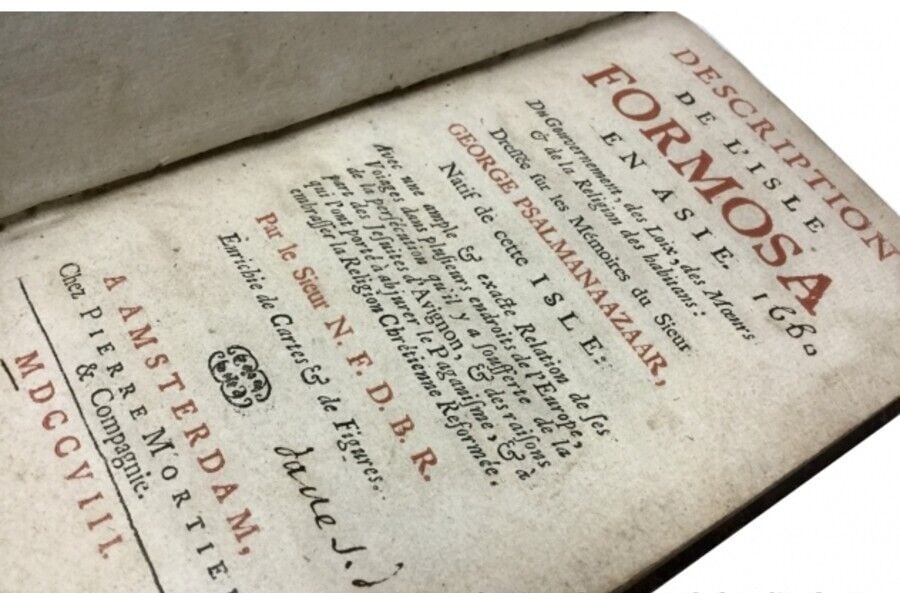 DESCRIPTION
DE L'ISLE
FORMOSA
EN ASIE.
1660
Du Gouvernement, des Loix, des Mœurs
& de la Religion des habitans:
Dreſſée ſur les Mémoires du Sieur
GEORGE PSALMANAAZAAR,
Natif de cette ISLE:
Avec une ample & exacte Relation de ſes
Voiages dans pluſieurs endroits de l'Europe,
de la perſécution qu'il y a ſoufferte de la
part des Jeſuites d'Avignon, & des raiſons
qui l'ont porté à abjurer le Paganiſme, & à
embraſſer la Religion Chrétienne Reformée.
Par le Sieur N. F. D. B. R.
Enrichie de Cartes & de Figures.
A AMSTERDAM,
Chez PIERRE MORTIE
& Compagnie.
MDCCVIII.